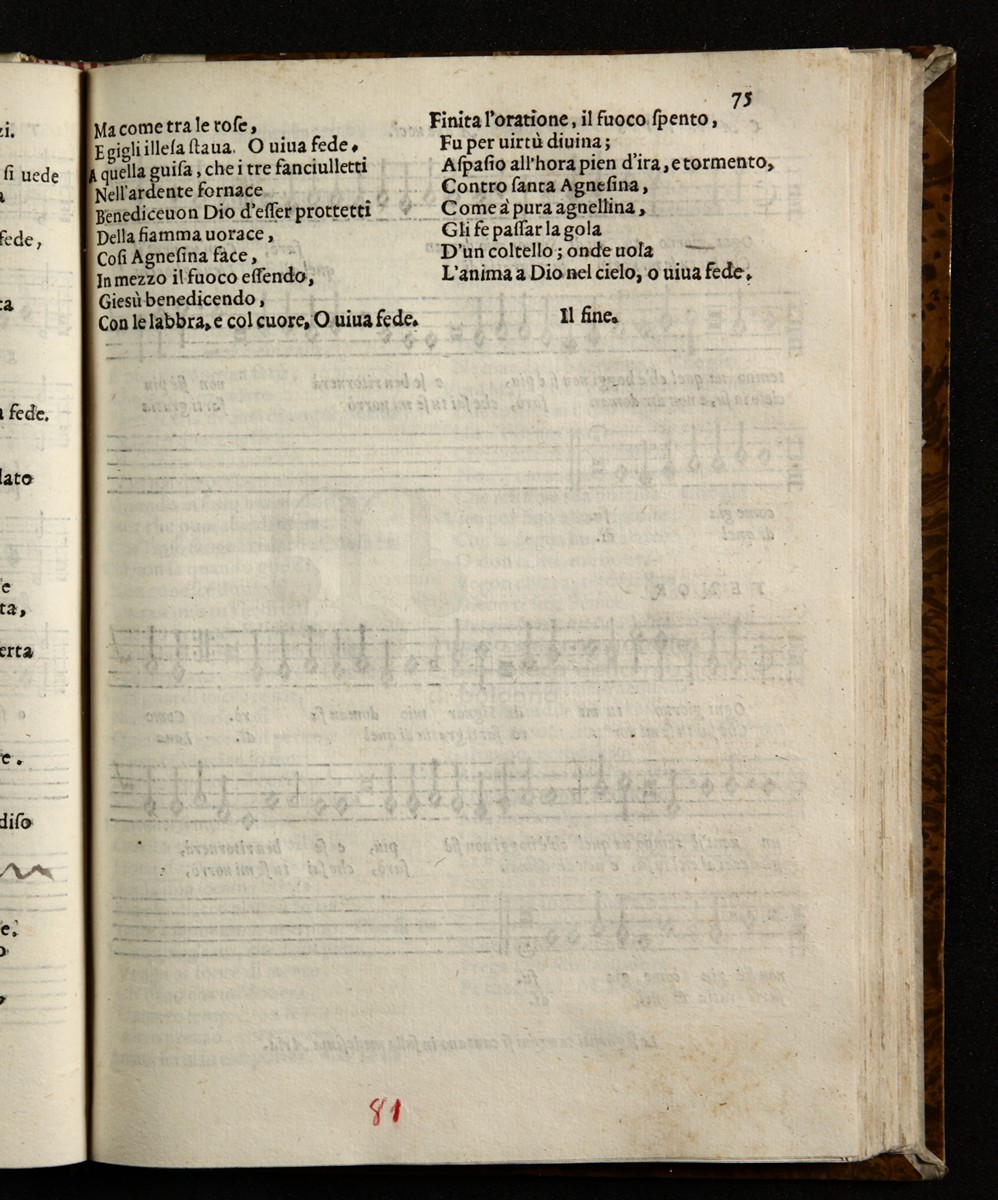 zi.
ſi uede
fede,
ta
a fede.
lato
e
ta,
erta
e.
diſo
e.
75
Ma come tra le roſe,
E gigli illeſa ſtaua. O uiua fede.
A quella guiſa, che i tre fanciulletti
Nell'ardente fornace
Benediceuon Dio d'eſſer prottetti
Della fiamma uorace,
Coſi Agneſina face,
In mezzo il fuoco eſſendo,
Gieſù benedicendo,
Con le labbra, e col cuore, O uiua fede.
Finita l'oratione, il fuoco ſpento,
Fu per uirtù diuina;
Aſpaſio all'hora pien d'ira, e tormento,
Contro ſanta Agneſina,
Come à pura agnellina,
Gli fe paſſar la gola
D'un coltello; onde uola
L'anima a Dio nel cielo, o uiua fede.
Il fine.
81